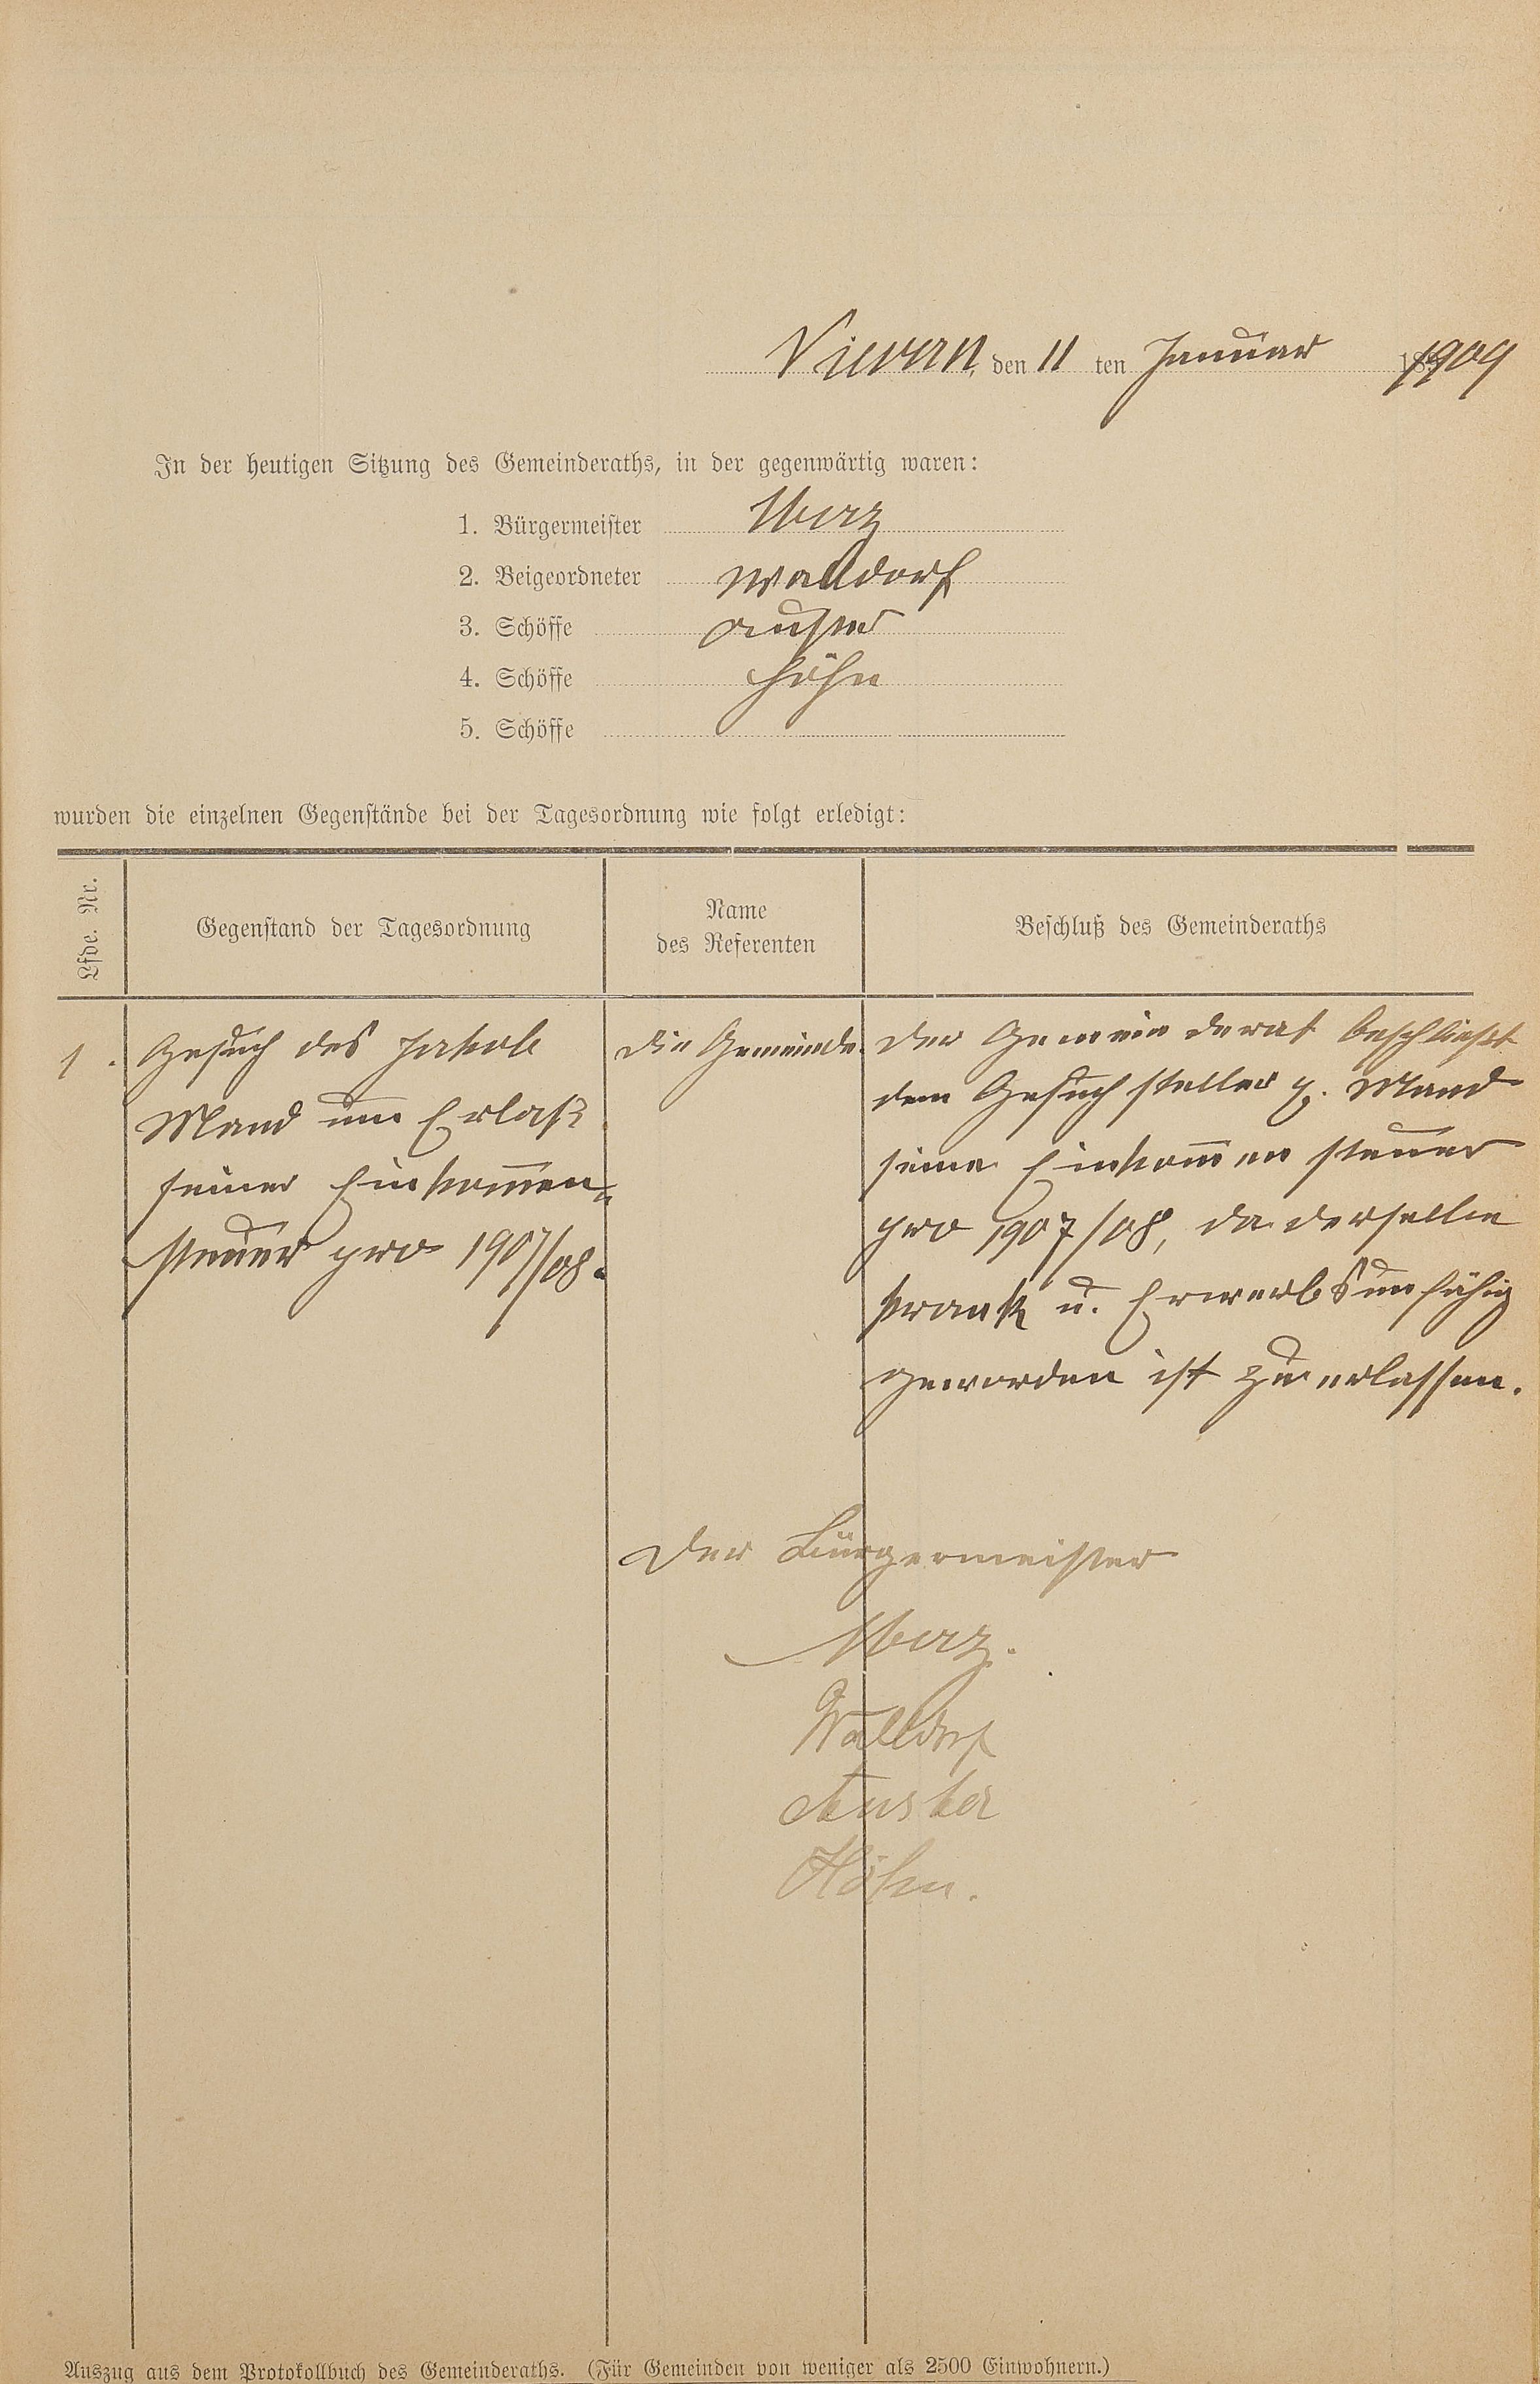 Nievern, den 11 ten Januar 1909
In der heutigen Sitzung des Gemeinderaths, in der gegenwärtig waren:
1. Bürgermeister Merz
2. Beigeordneter Walldorf
3. Schöffe Auster
4. Schöffe Höhn
5. Schöffe
wurden die einzelnen Gegenstände bei der Tagesordnung wie folgt erledigt:
Lfde. Nr.
Gegenstand der Tagesordnung
Name
des Referenten
Beschluß des Gemeinderaths
1.
Gesuch des Jakob
Mand um Erlaß
seiner Einkom̄en=
steuer pro 1907/08.
Die Gemeinde.
Der Gemeinderat beschließt
dem Gesuchsteller p. Mand
seine Einkom̄ensteuer
pro 1907/08, da derselbe
krank u. Erwerbsunfähig
geworden ist zu erlassen.
Der Bürgermeister
Merz.
Walldorf
Auster
Höhn.
Auszug aus dem Protokollbuch des Gemeinderaths. (Für Gemeinden von weniger als 2500 Einwohnern.)